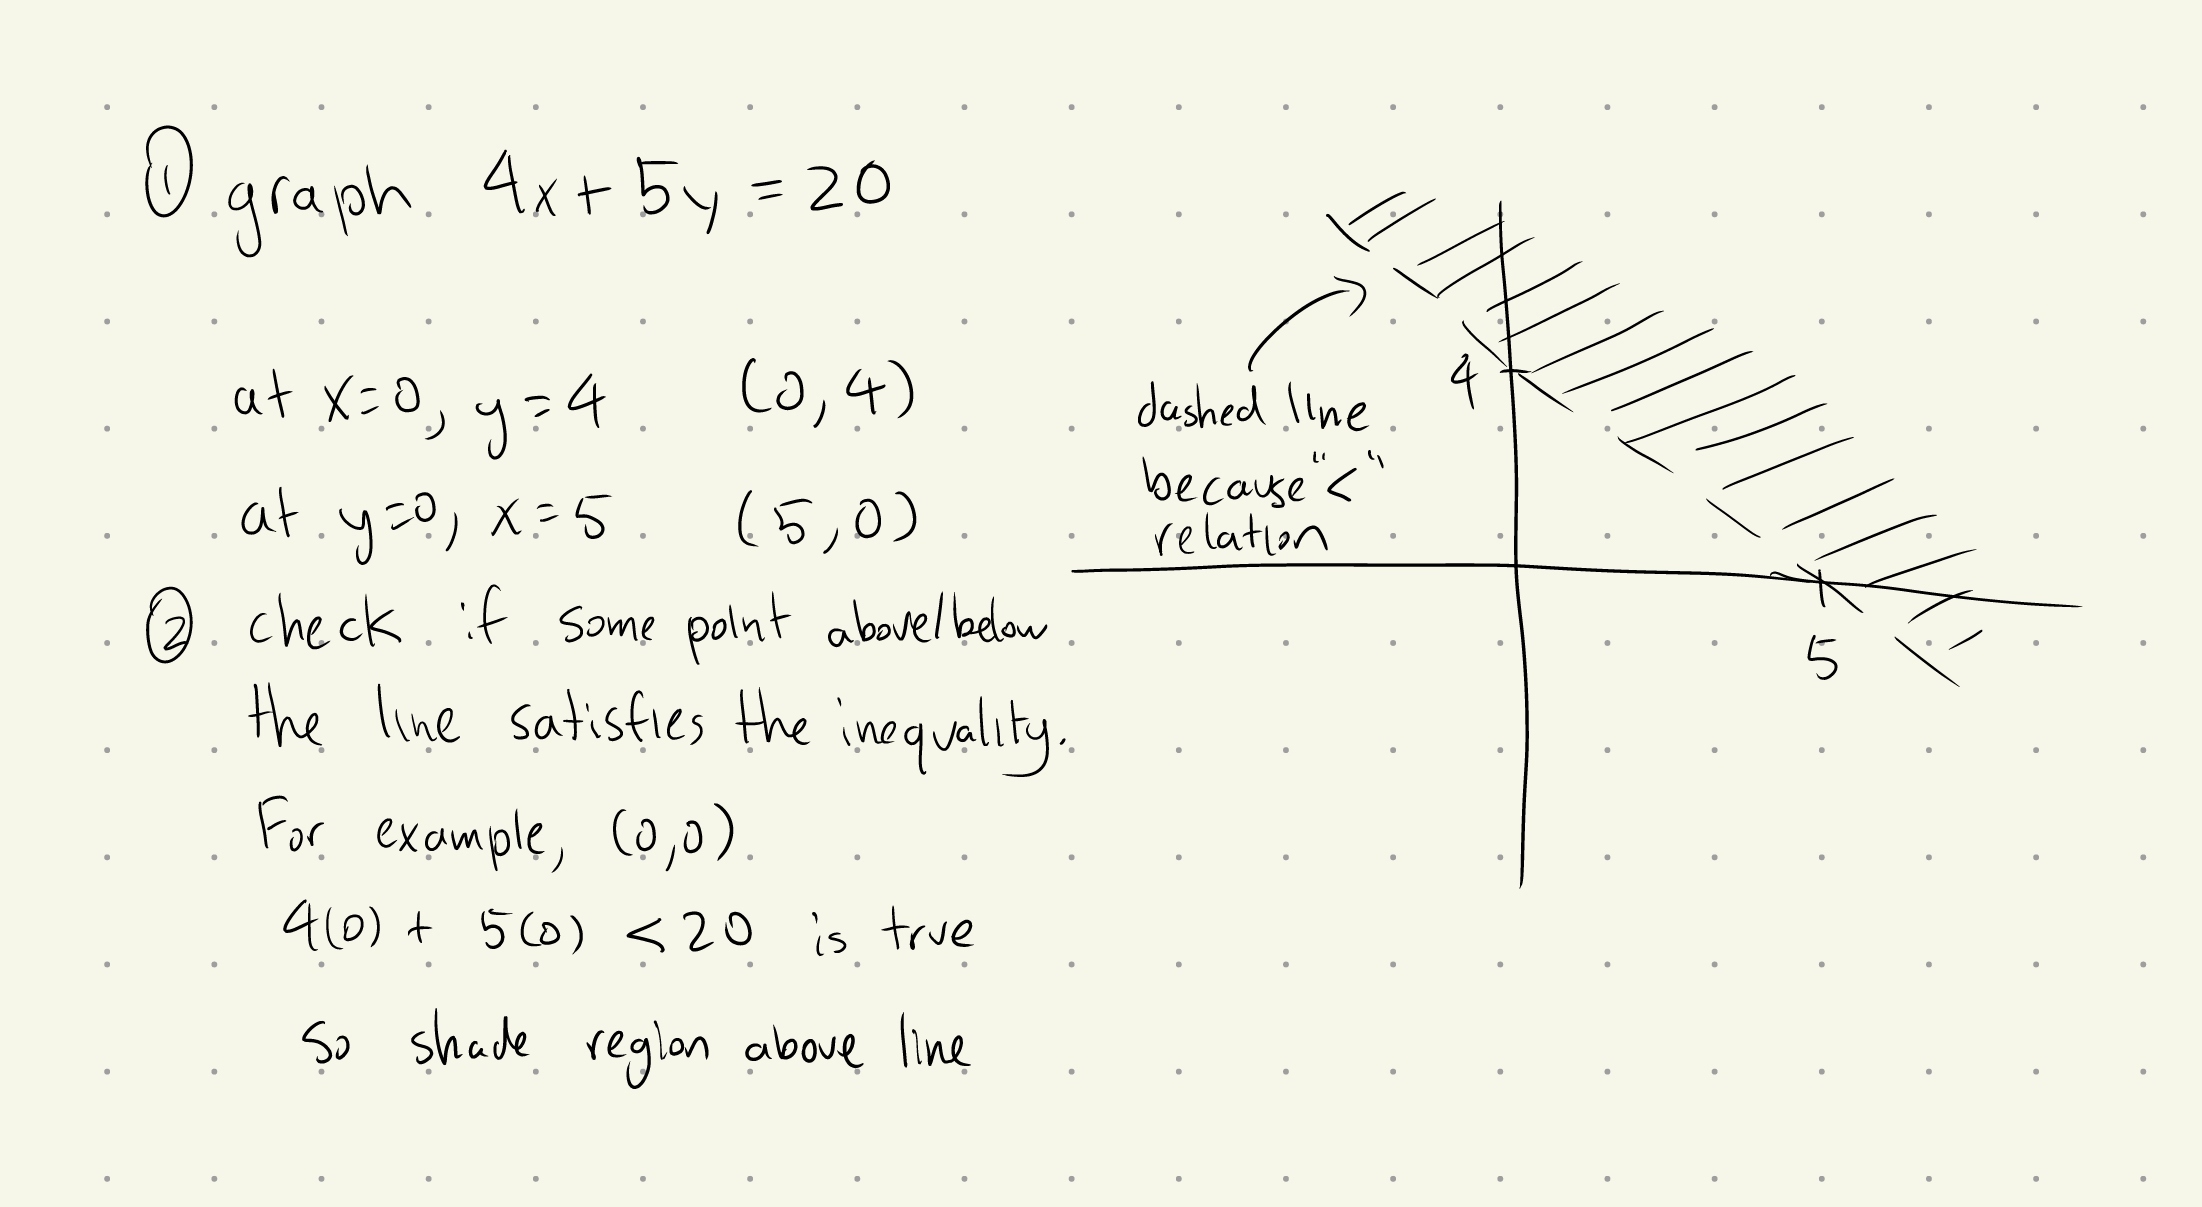 ① graph 4x + 5y = 20
at x=0, y=4 (0,4)
at y=0, x=5 (5,0)
② check if some point above/below
the line satisfies the inequality.
For example, (0,0)
4(0) + 5(0) < 20 is true
so shade region above line
4
dashed line
because "<"
relation
5